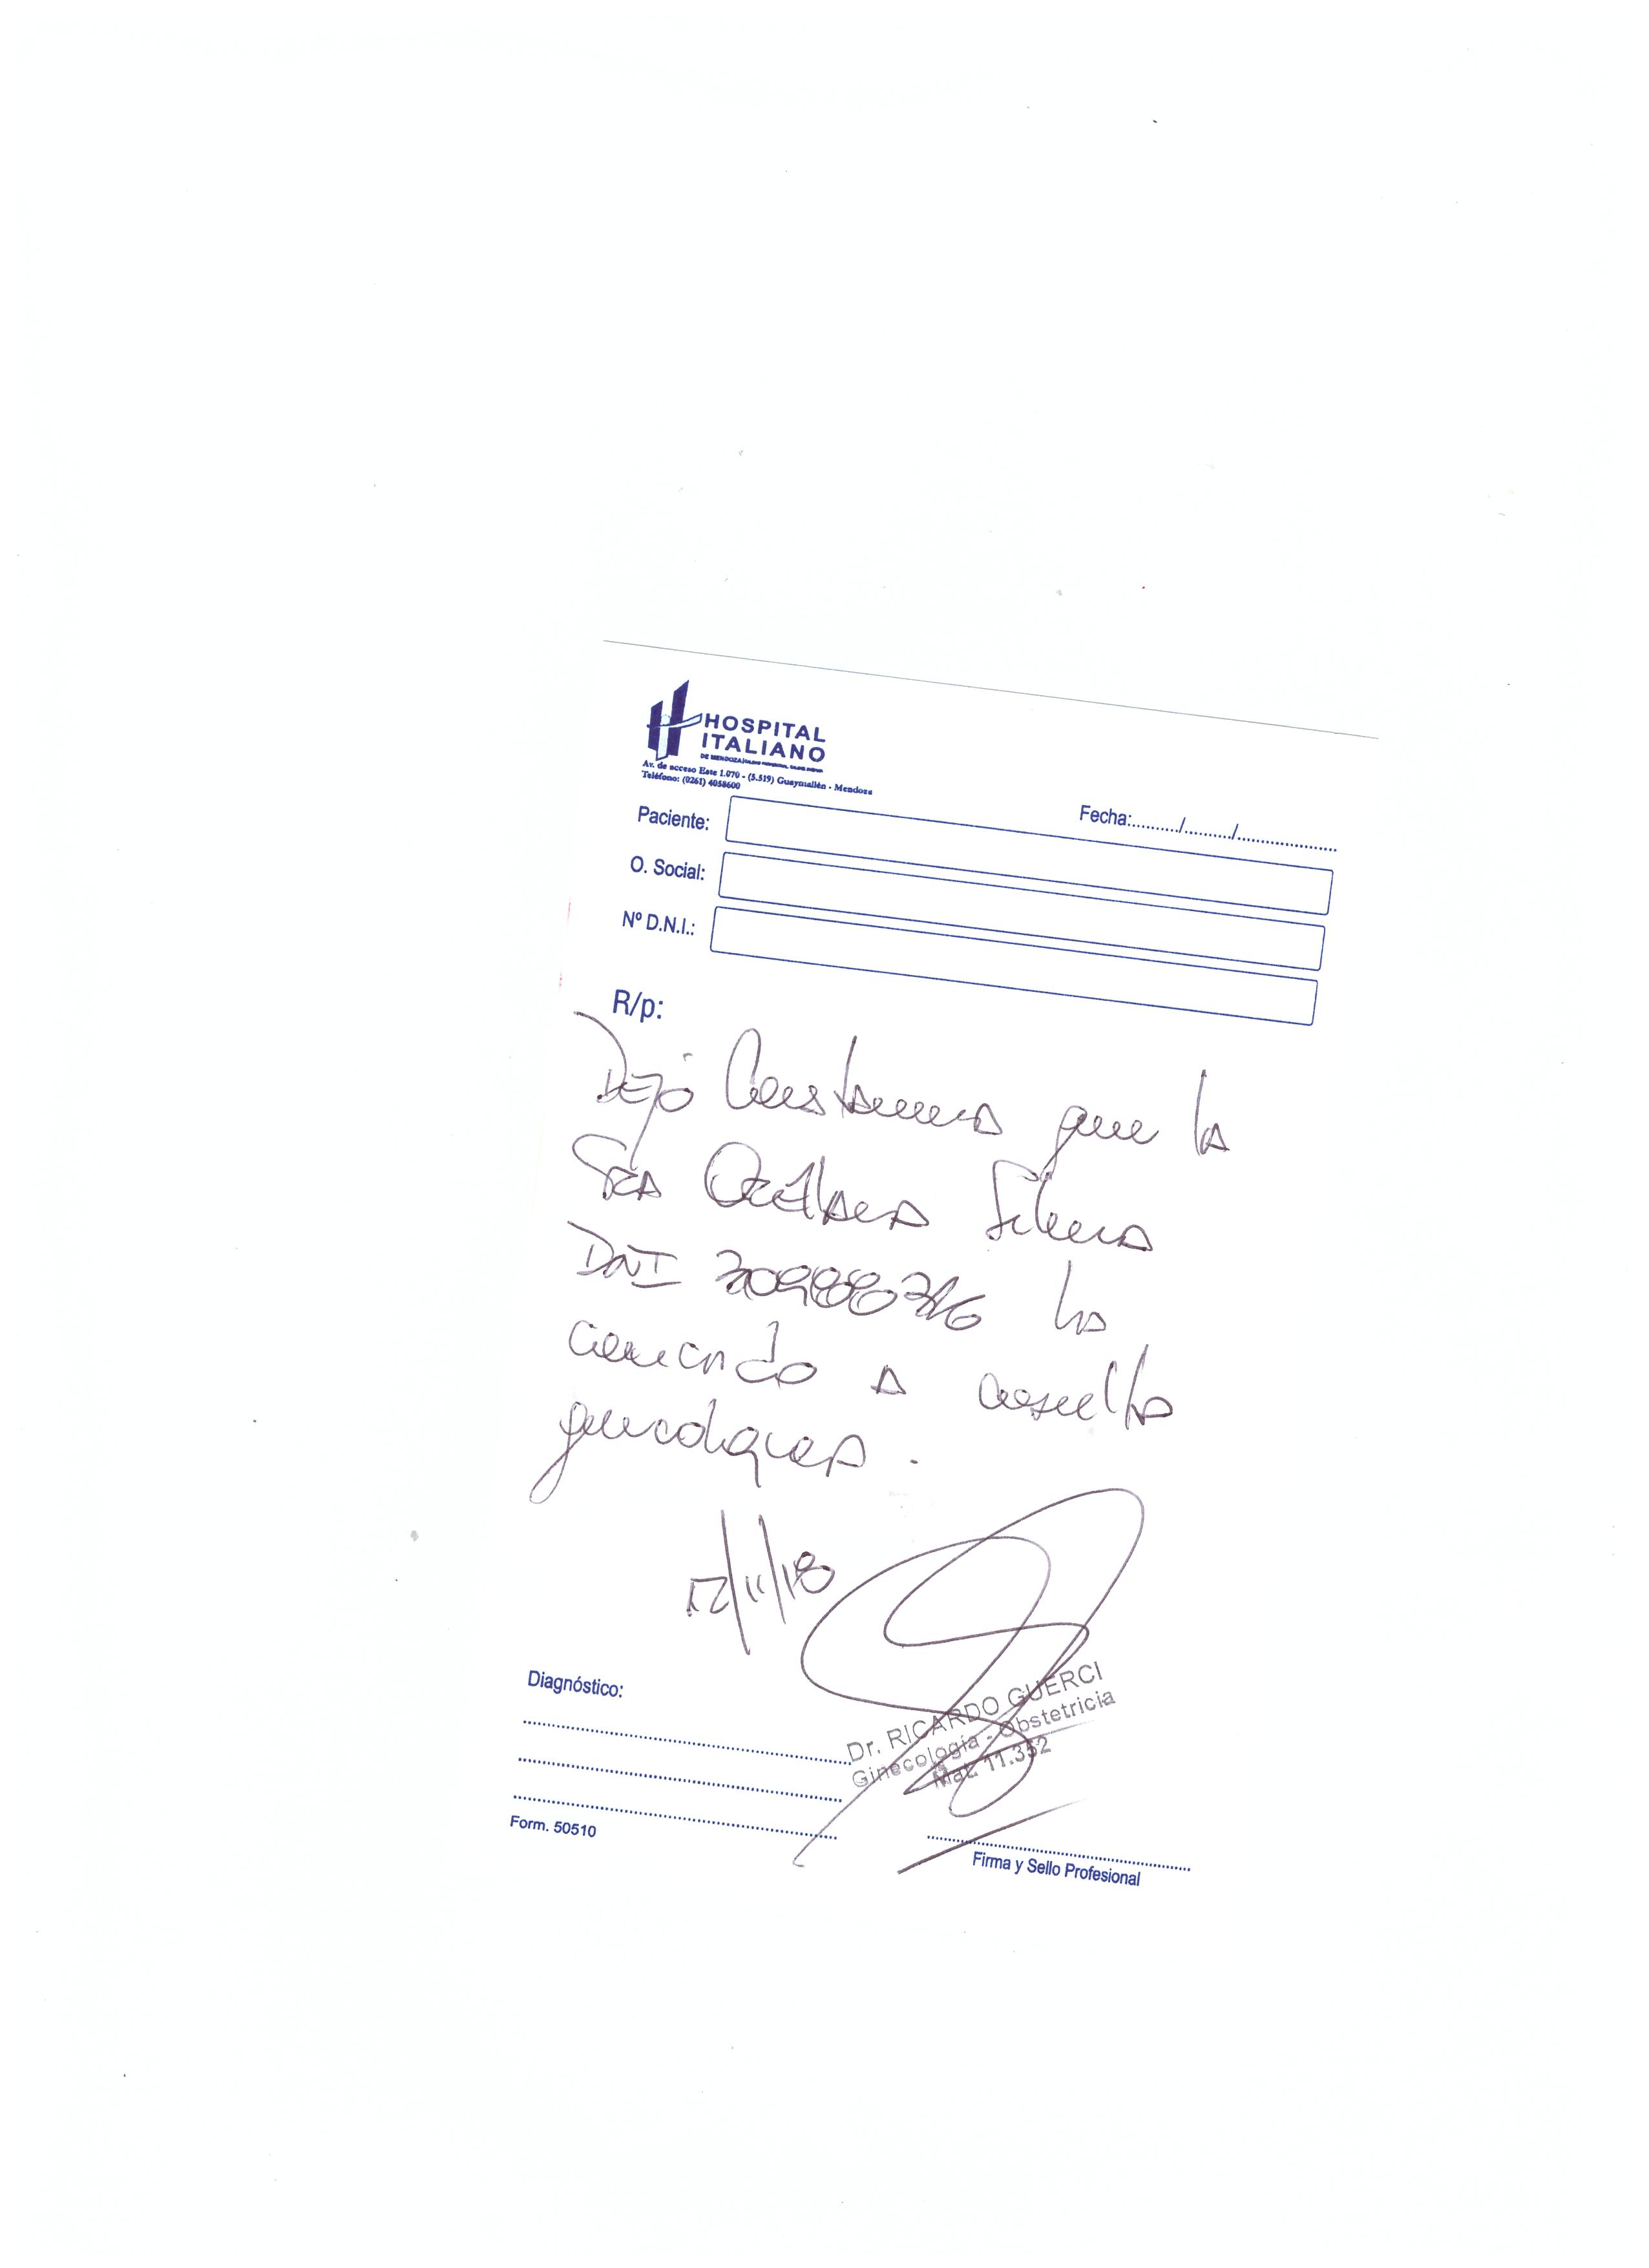 HOSPITAL
ITALIANO
Av. de acceso Este 1.070 - (5.519) Guaymallén - Mendoza
Teléfono: (0261) 4058600
Fecha:........./........../....................
Paciente:
O. Social:
Nº D.N.I.:
R/p:
Dejo Constancia que la
Sra Orellana Silvina
DNI
ha
concurrido a consulta
ginecologica.
12/11/18
Diagnóstico:
Dr. RICARDO GUERCI
Ginecología - Obstetricia
Mat. 11.352
Form. 50510
Firma y Sello Profesional